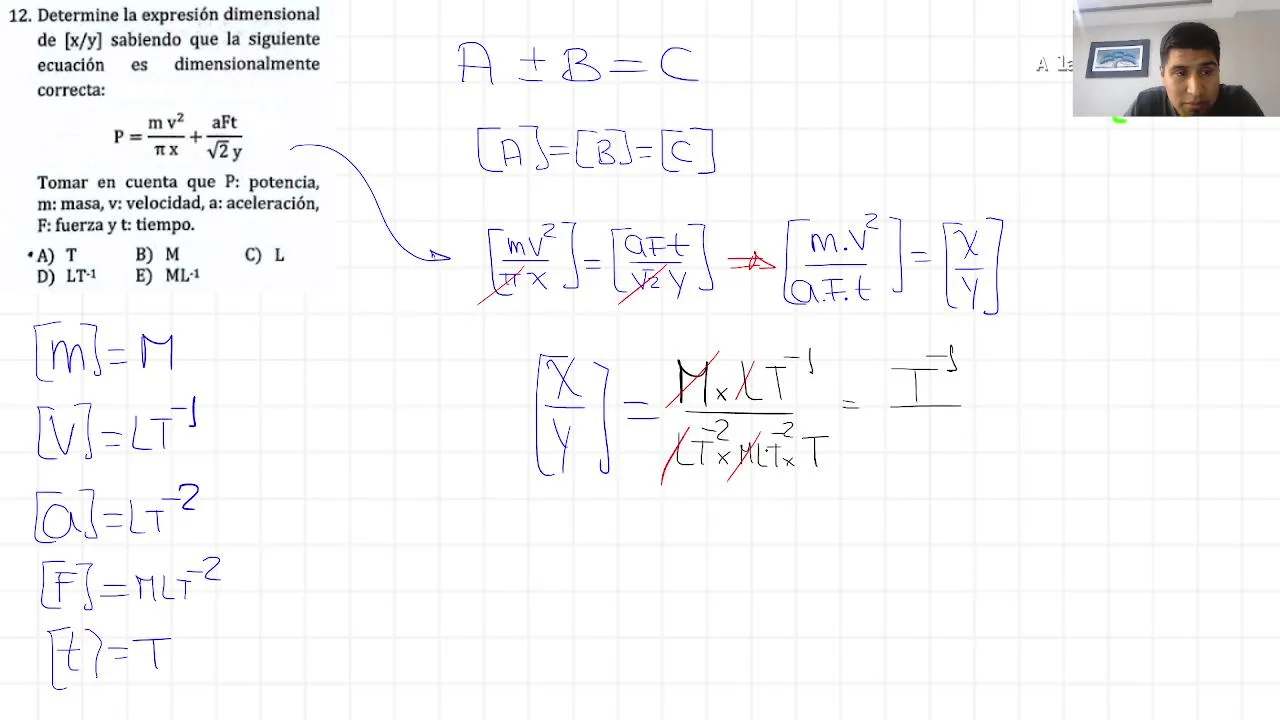 12. Determine la expresión dimensional
de [x/y] sabiendo que la siguiente
ecuación es dimensionalmente
correcta:
P = m v² / π x + aFt / √2 y
Tomar en cuenta que P: potencia,
m: masa, v: velocidad, a: aceleración,
F: fuerza y t: tiempo.
• A) T B) M C) L
D) LT⁻¹ E) ML⁻¹
A ± B = C
[A] = [B] = [C]
[mv² / π x] = [aFt / √2 y] ⇒ [m.v² / a.F.t] = [x / y]
[x / y] = M x LT⁻¹ / LT⁻² x MLT⁻² x T = T⁻¹
[m] = M
[V] = LT⁻¹
[a] = LT⁻²
[F] = MLT⁻²
[t] = T